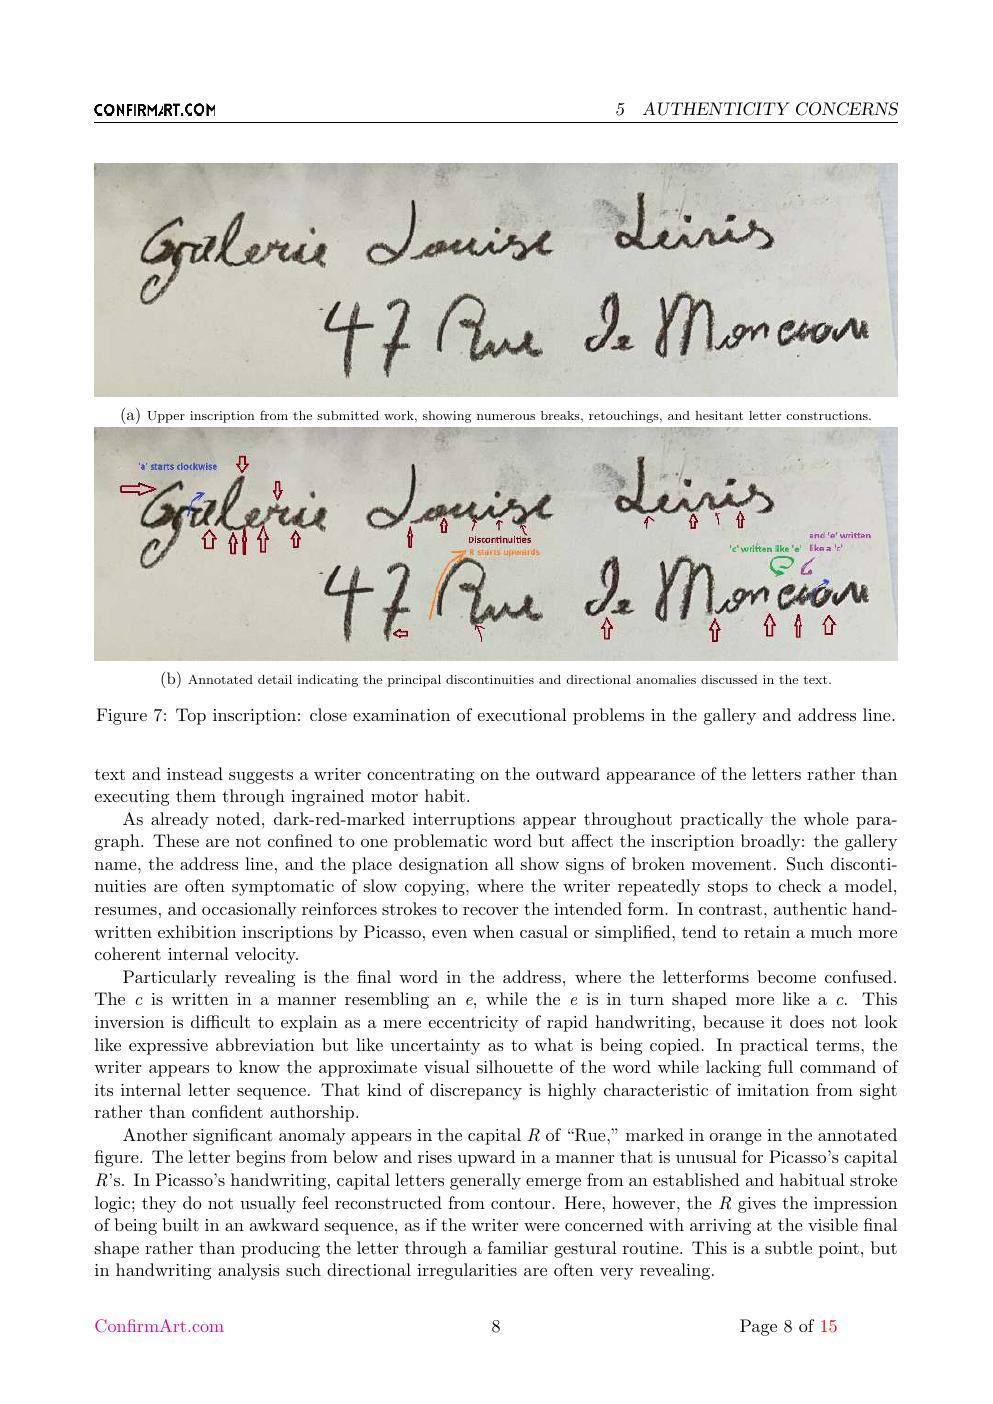 CONFIRMART.COM 5 AUTHENTICITY CONCERNS
Galerie Louise Leiris
47 Rue de Monceau
(a) Upper inscription from the submitted work, showing numerous breaks, retouchings, and hesitant letter constructions.
'a' starts clockwise
Galerie Louise Leiris
Discontinuities
R starts upwards
'c' written like 'e'
and 'e' written
like a 'c'
47 Rue de Monceau
(b) Annotated detail indicating the principal discontinuities and directional anomalies discussed in the text.
Figure 7: Top inscription: close examination of executional problems in the gallery and address line.
text and instead suggests a writer concentrating on the outward appearance of the letters rather than
executing them through ingrained motor habit.
As already noted, dark-red-marked interruptions appear throughout practically the whole para-
graph. These are not confined to one problematic word but affect the inscription broadly: the gallery
name, the address line, and the place designation all show signs of broken movement. Such disconti-
nuities are often symptomatic of slow copying, where the writer repeatedly stops to check a model,
resumes, and occasionally reinforces strokes to recover the intended form. In contrast, authentic hand-
written exhibition inscriptions by Picasso, even when casual or simplified, tend to retain a much more
coherent internal velocity.
Particularly revealing is the final word in the address, where the letterforms become confused.
The c is written in a manner resembling an e, while the e is in turn shaped more like a c. This
inversion is difficult to explain as a mere eccentricity of rapid handwriting, because it does not look
like expressive abbreviation but like uncertainty as to what is being copied. In practical terms, the
writer appears to know the approximate visual silhouette of the word while lacking full command of
its internal letter sequence. That kind of discrepancy is highly characteristic of imitation from sight
rather than confident authorship.
Another significant anomaly appears in the capital R of “Rue,” marked in orange in the annotated
figure. The letter begins from below and rises upward in a manner that is unusual for Picasso’s capital
R’s. In Picasso’s handwriting, capital letters generally emerge from an established and habitual stroke
logic; they do not usually feel reconstructed from contour. Here, however, the R gives the impression
of being built in an awkward sequence, as if the writer were concerned with arriving at the visible final
shape rather than producing the letter through a familiar gestural routine. This is a subtle point, but
in handwriting analysis such directional irregularities are often very revealing.
ConfirmArt.com 8 Page 8 of 15